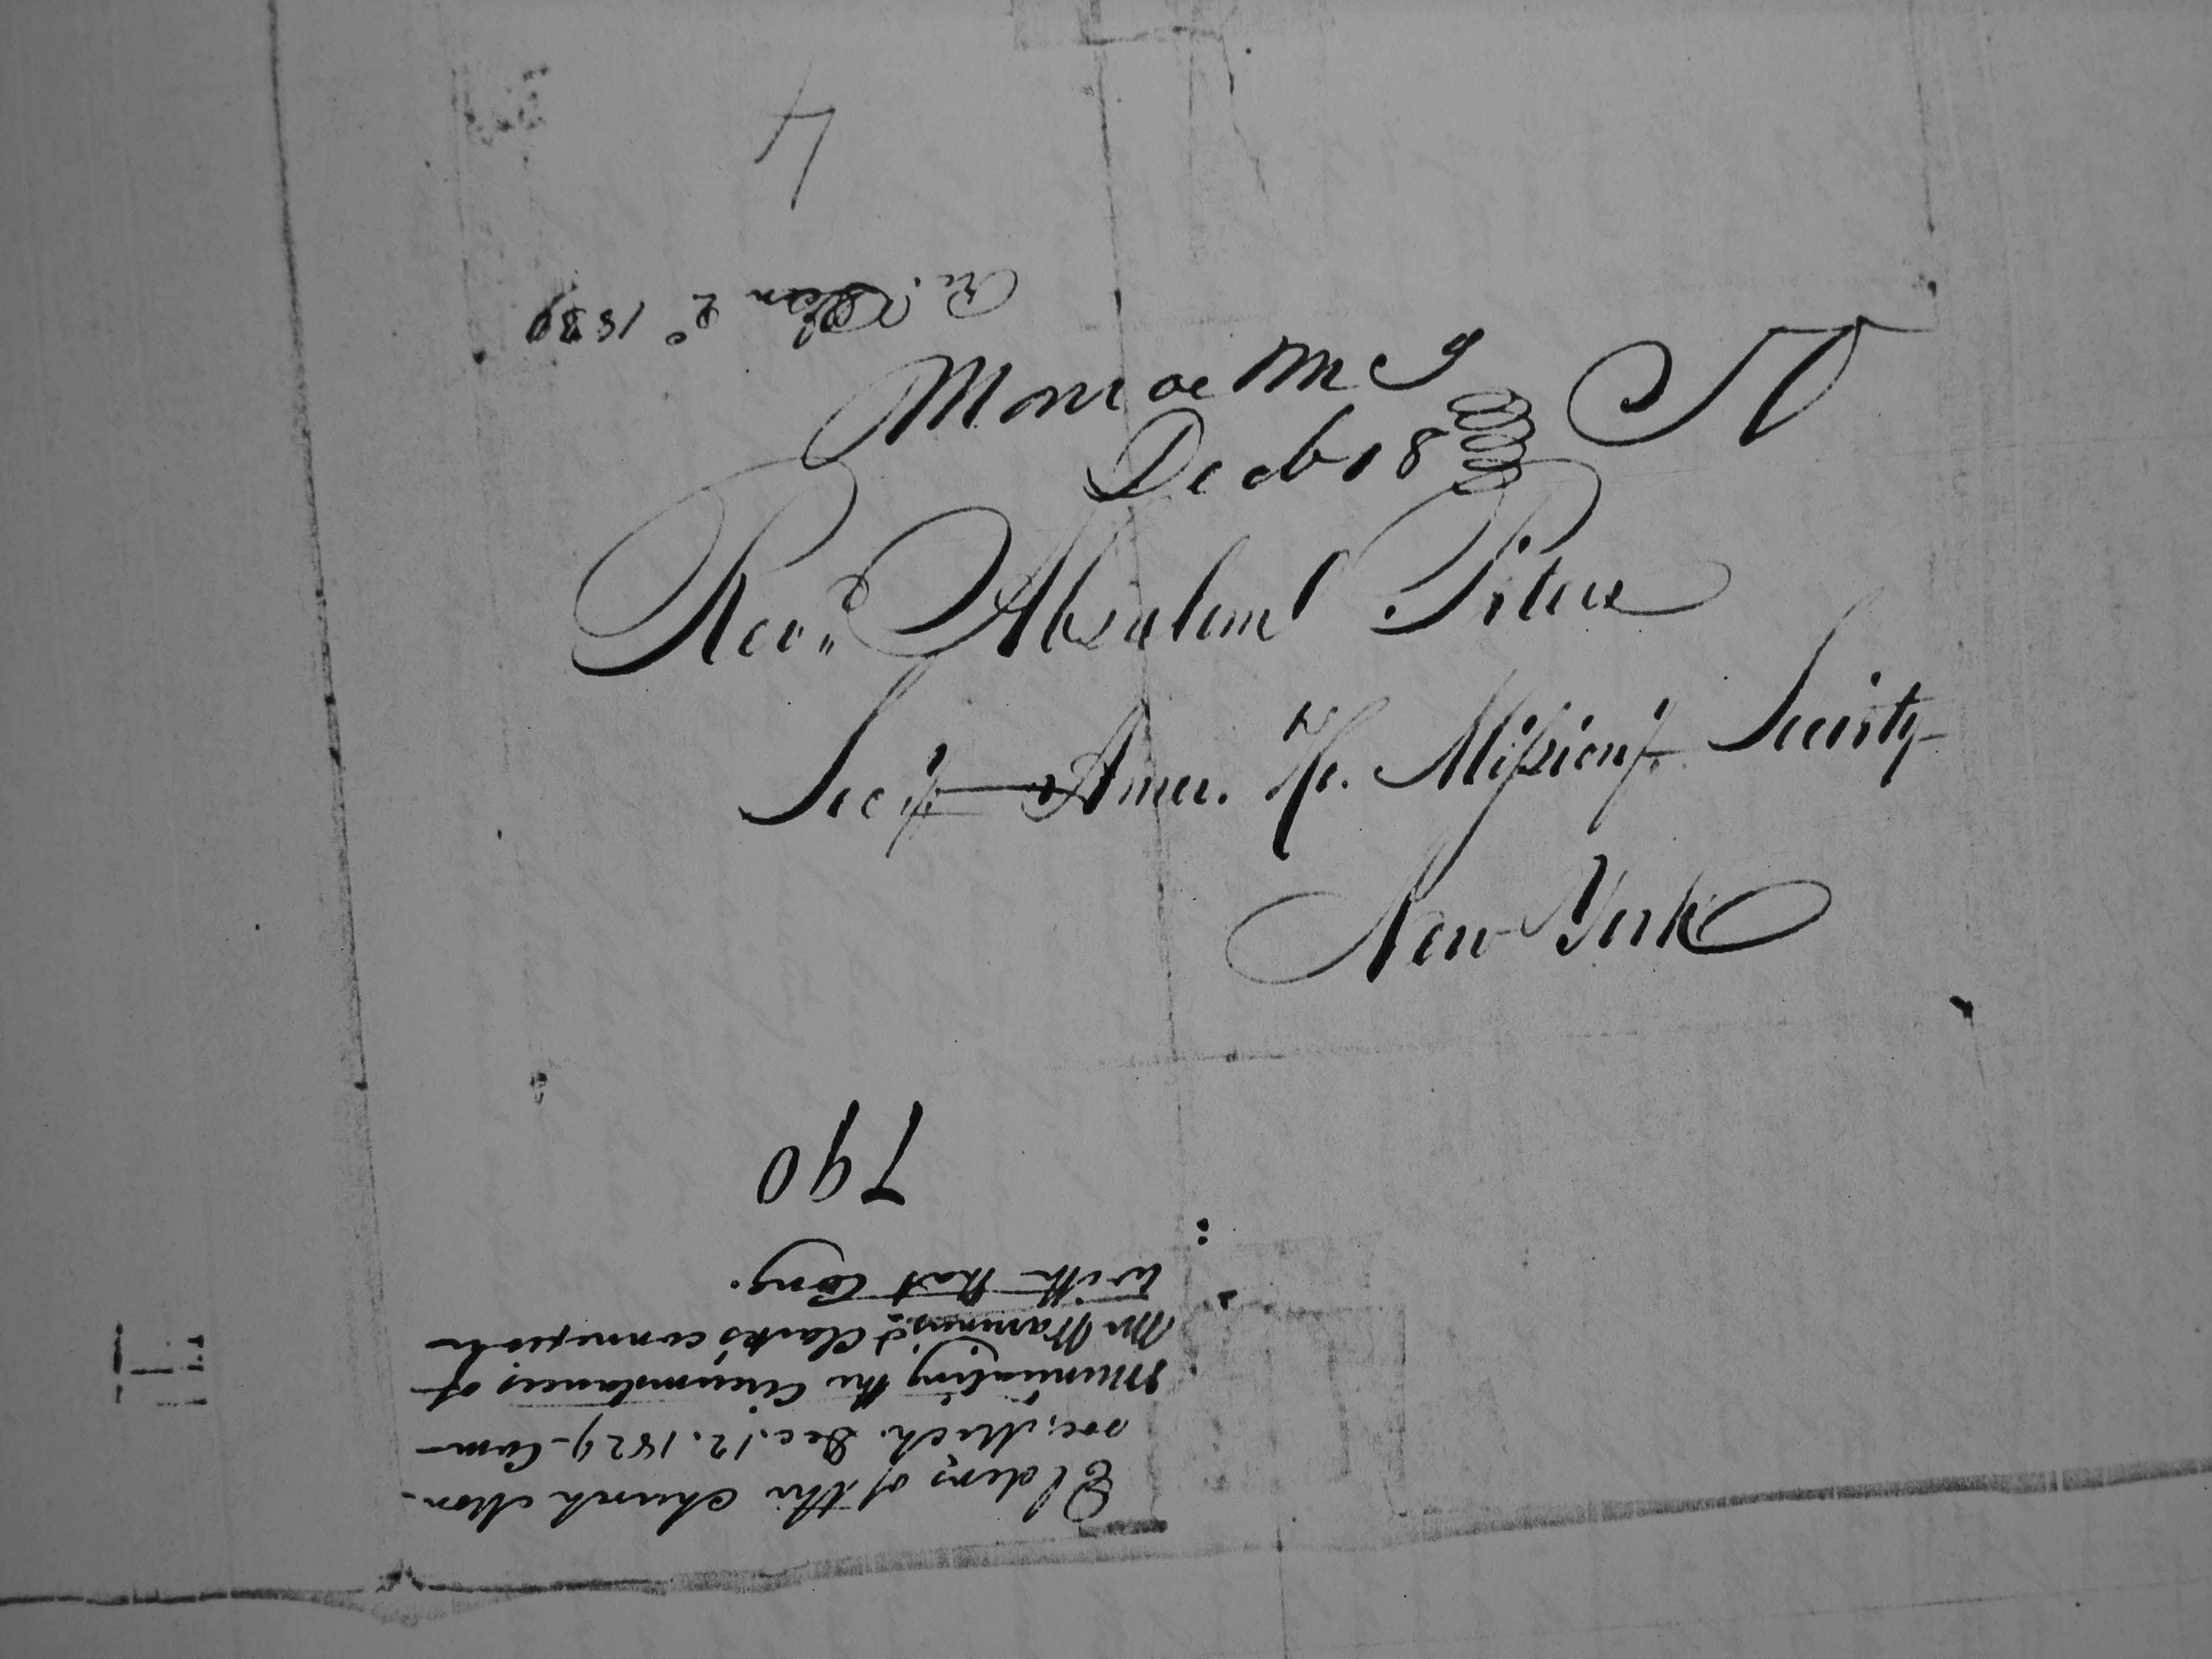 4
Monroe M
Decb 18
Rev.d Absalom Peters
Secy Amer. H. Missiony Society
New York
790
Elders of the church Mon-
roe, Mich. Dec. 12. 1829 - Com-
municating the circumstances of
Mr Warriners & Clark's connexion
with that Cong.